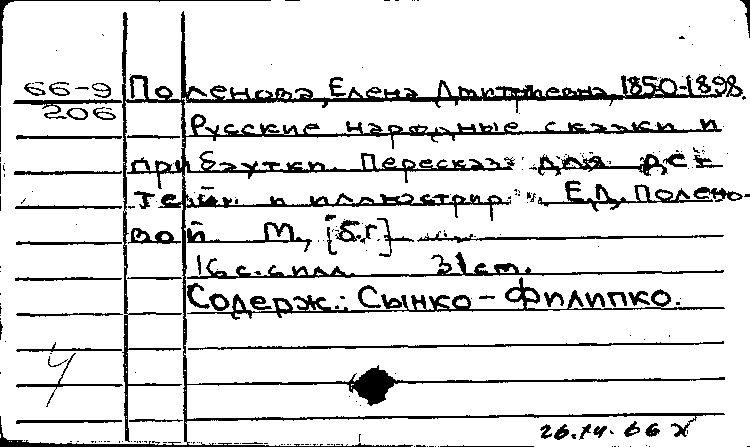 66-9 Поленова, Елена Дмитриевна, 1850-1898.
206 Русские народные сказки и
прибаутки. Пересказ. для де-
тей и иллюстрир. Е.Д. Полено-
вой М., [б.г.]
16 с. с илл. 31 cm.
Содерж.: Сынко-Филипко.
4
26.IV.66